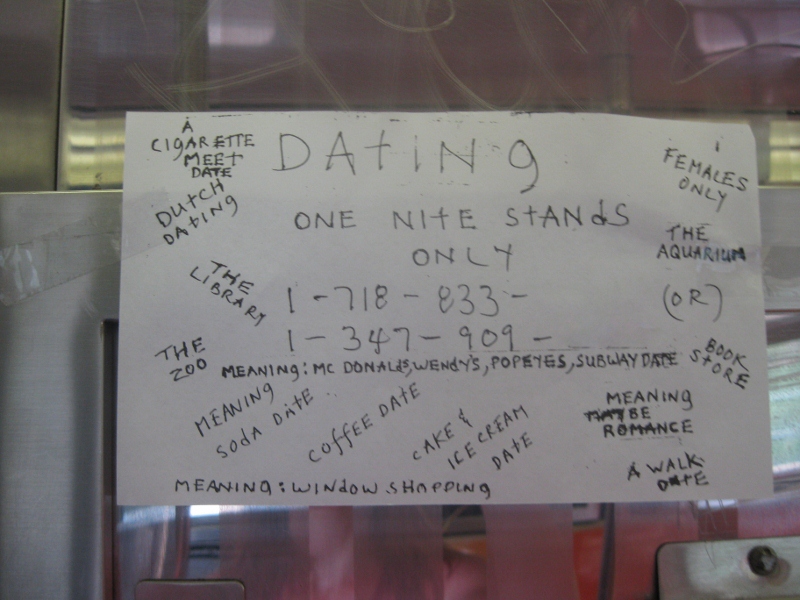 DAtiNg
ONE NITE StANdS
ONLY
1-718-833-
1-347-909-
MEANINg: MC DONALdS, WENdY'S, POPEYES, SUBWAY DATE
A
CIgARETTE
MEET
DATE
DUtCH
DAtINg
THE
LIBRARY
THE
ZOO
FEMALES
ONLY
THE
AQUARIUM
(OR)
BOOK
StORE
MEANING
SOdA DAtE
COffEE DAtE
CAKE &
ICE CREAM
DAtE
MEANING
MAYBE
ROMANCE
A WALK
DAtE
MEANINg: WINdOW SHOPPINg